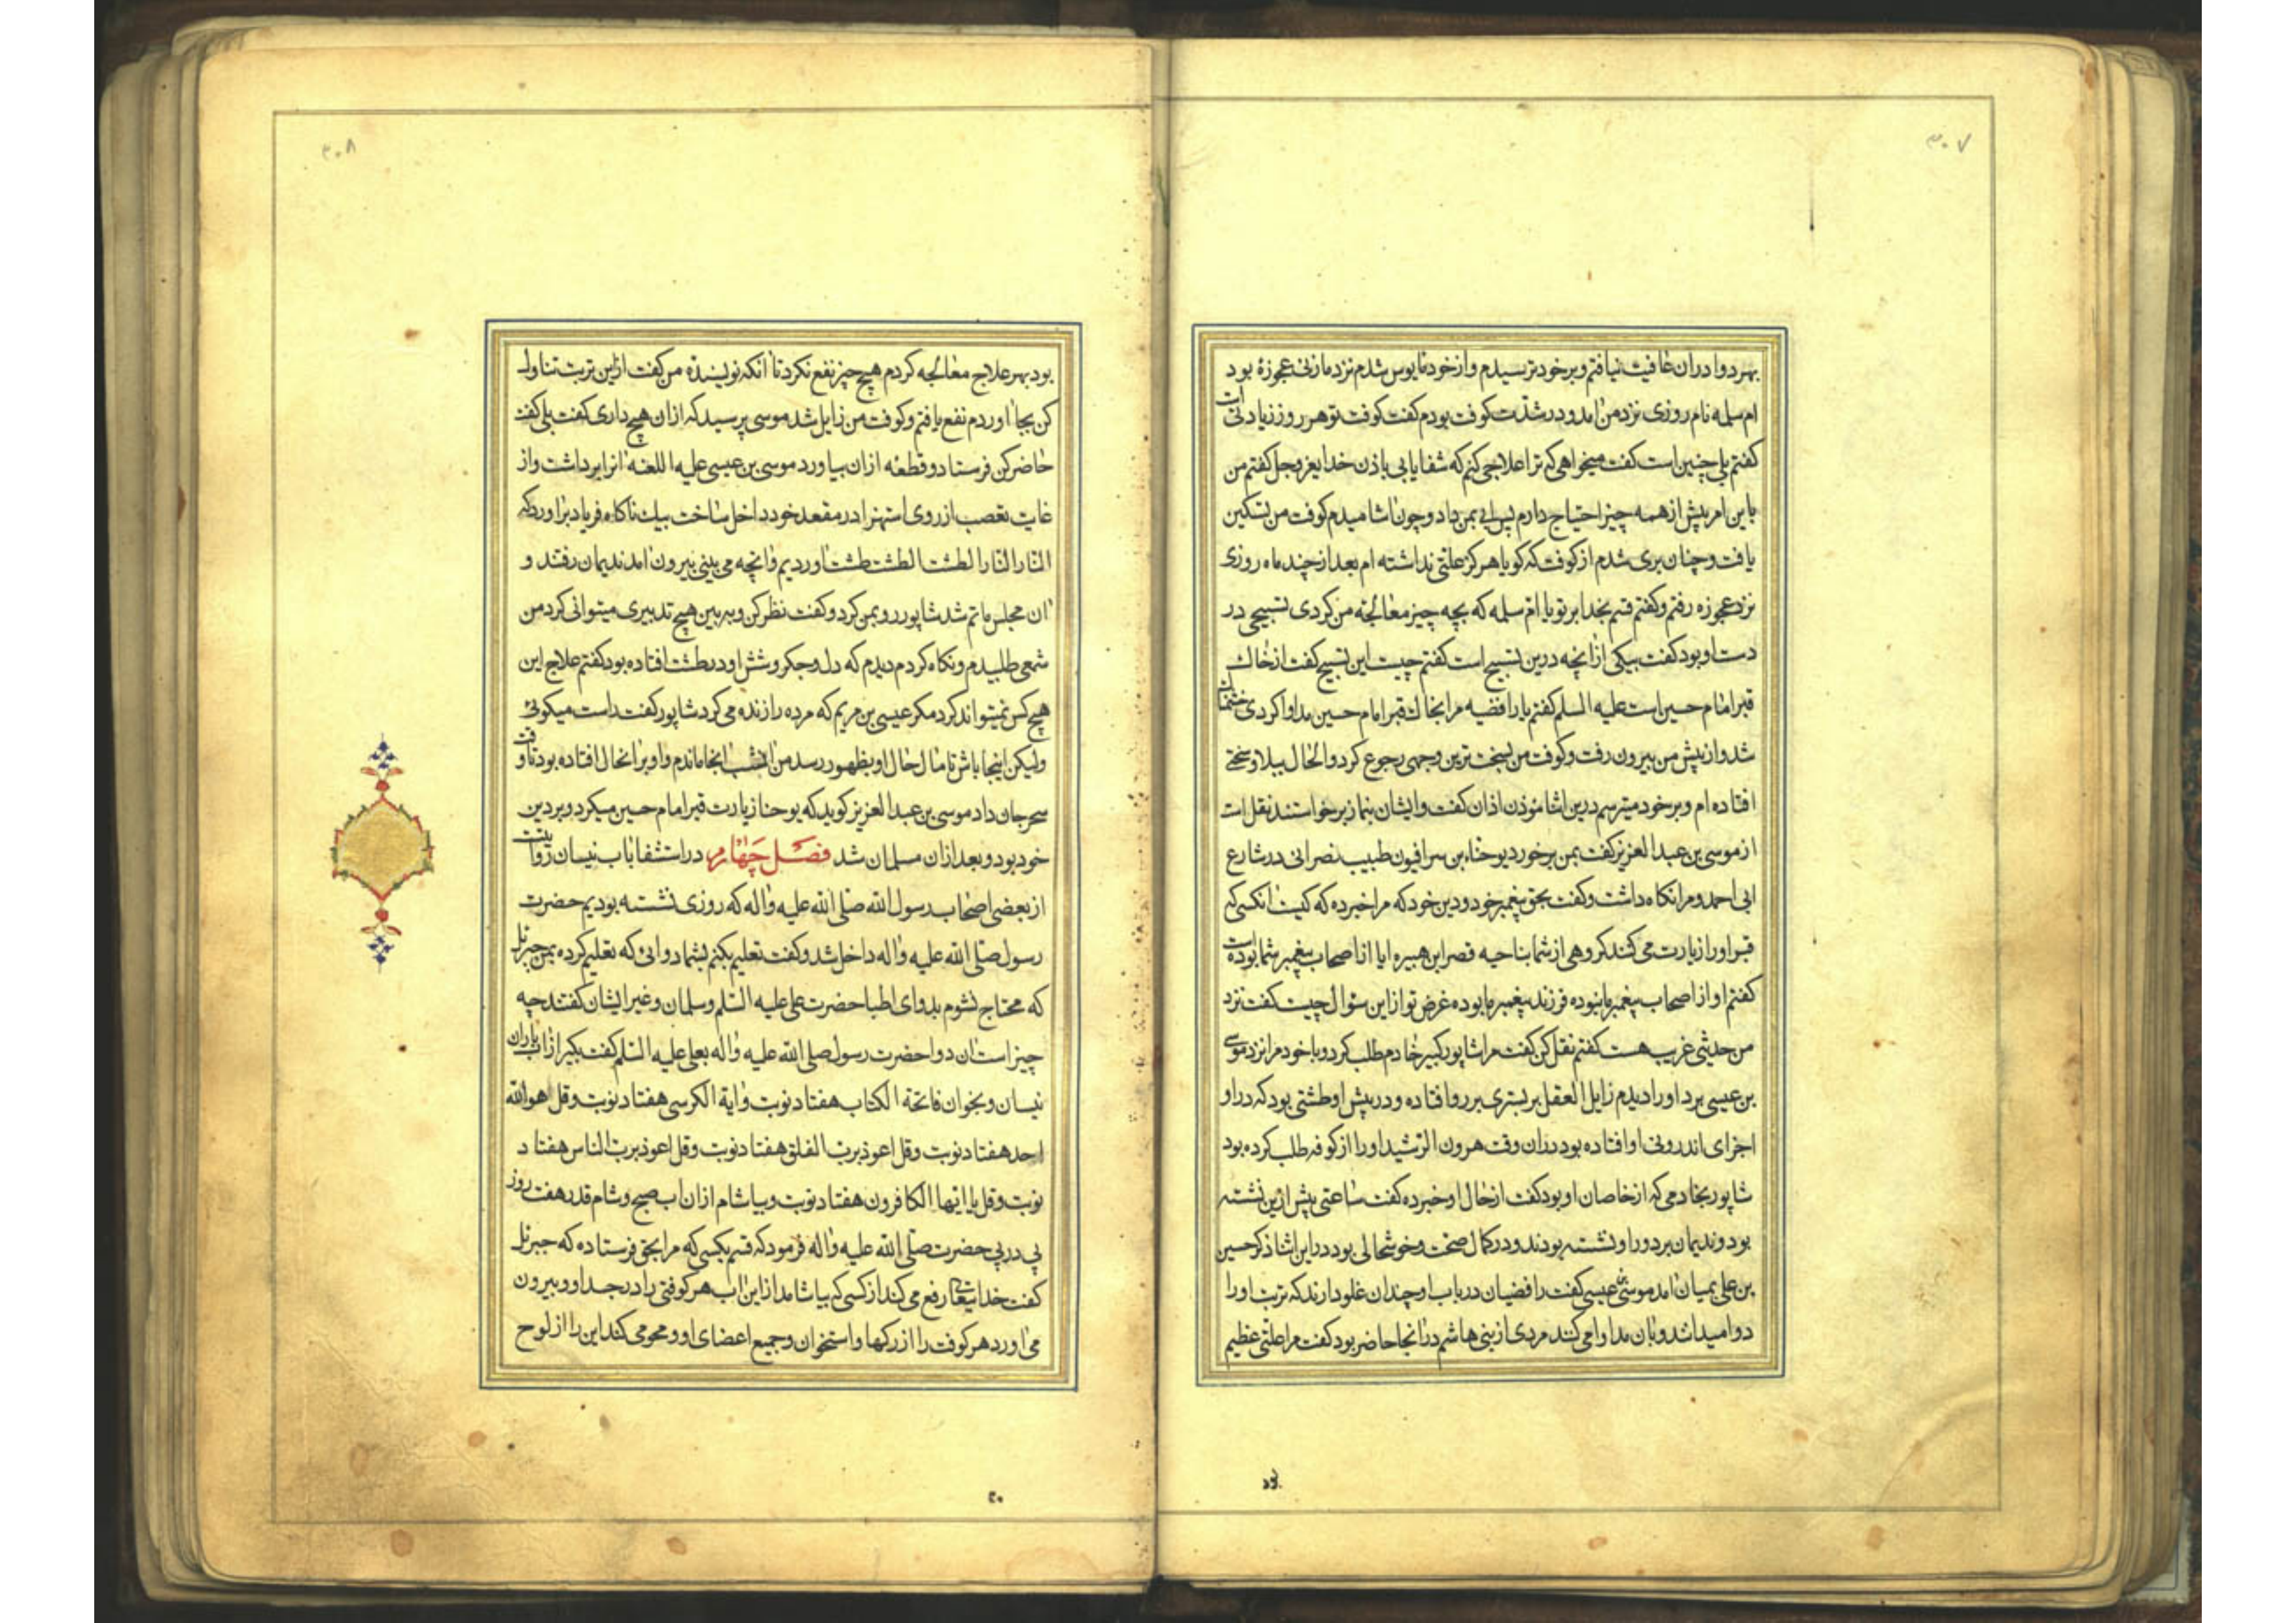 ۳۰۷
بهر دوا دران عافیت نیافتم وبر خود ترسیدم واز خود مایوس شدم نزد ما زنی عجوزهٔ بود
ام سلمه نام روزی نزد من امد ودر شدت کوفت بودم کفت کوفت تو هر روز زیادتی است
کفتم بلی چنین است کفت میخواهی که ترا علاجی کنم که شفا یابی باذن خدای عز وجل کفتم من
باین امر بیش از همه چیز احتیاج دارم پس ابی بمن داد وچون اشامیدم کوفت من تسکین
یافت وچنان بری شدم از کوفت که کویا هرکز علتی نداشته ام بعد از چند ماه روزی
نزد عجوزه رفتم وکفتم قسم بخدا بر تو یا ام سلمه که بچه چیز معالجه من کردی تسبیحی در
دست او بود کفت بیکی ازانچه درین تسبیح است کفتم چیست این تسبیح کفت از خاك
قبر امام حسین است علیه السلم کفتم یا رافضیه مرا بخاك قبر امام حسین مداوا کردی خشمناك
شد واز پیش من بیرون رفت وکوفت من بسخت ترین وجهی رجوع کرد والحال ببلا وسختی
افتاده ام وبر خود میترسم درین اثنا موذن اذان کفت وایشان بنماز برخواستند نقل است
از موسی بن عبد العزیز کفت بمن برخورد یوحناء بن سرافیون طبیب نصرانی در شارع
ابی احمد ومرا نکاه داشت وکفت بحق پیغمبر خود ودین خود که مرا خبر ده که کیست انکسی که
قبر او را زیارت می کنند کروهی از شما بناحیه قصر ابن هبیره ایا از اصحاب پیغمبر شما بوده است
کفتم او از اصحاب پیغمبر ما نبوده فرزند پیغمبر ما بوده غرض تو ازاین سئوال چیست کفت نزد
من حدیثی غریب هست کفتم نقل کن کفت مرا شاپور کبیر خادم طلب کرد وبا خود مرا نزد موسی
بن عیسی برد او را دیدم زایل العقل بر بستری بر رو افتاده ودر پیش او طشتی بود که در او
اجزای اندرونی او افتاده بود دران وقت هرون الرشید او را از کوفه طلب کرده بود
شاپور بخادمی که از خاصان او بود کفت از حال او خبر ده کفت ساعتی پیش ازین نشسته
بود وندیمان بر دور او نشسته بودند ودر کمال صحت وخوشحالی بود دراین اثنا ذکر حسین
بن علی بمیان امد موسی بن عیسی کفت رافضیان در باب او چندان غلو دارند که تربت او را
دوا میدانند وبان مداوا می کنند مردی از بنی هاشم درانجا حاضر بود کفت مرا علتی عظیم
۳۰۸
بود بهر علاج معالجه کردم هیچ چیز نفع نکرد تا انکه نویسندهٔ من کفت ازین تربت تناول
کن بجا اوردم نفع یافتم وکوفت من زایل شد موسی پرسید که ازان هیچ داری کفت بلی کفت
حاضر کن فرستاد وقطعه ازان بیاورد موسی بن عیسی علیه اللعنه انرا برداشت واز
غایت تعصب از روی استهزا در مقعد خود داخل ساخت بیك ناکاه فریاد براورد که
النار النار الطشت الطشت طشت اوردیم وانچه می بینی بیرون امد ندیمان رفتند و
ان مجلس ماتم شد شاپور رو بمن کرد وکفت نظر کن وببین هیچ تدبیری میتوانی کرد من
شمعی طلبیدم ونکاه کردم دیدم که دل وجکر وشش او در طشت افتاده بود کفتم علاج این
هیچ کس نمیتواند کرد مکر عیسی بن مریم که مرده را زنده می کرد شاپور کفت راست میکوئی
ولیکن اینجا باش تا مال حال او بظهور رسد من انشب انجا ماندم واو بر انحال افتاده بود تا وقت
سحر جان داد موسی بن عبد العزیز کوید که یوحنا زیارت قبر امام حسین میکرد وبر دین
خود بود وبعد ازان مسلمان شد فصل چهارم در استشفا باب نیسان روایتست
از بعضی اصحاب رسول الله صلی الله علیه واله که روزی نشسته بودیم حضرت
رسول صلی الله علیه واله داخل شد وکفت تعلیم بکنم بشما دوائی که تعلیم کرده بمن جبرئل
که محتاج نشوم بدوای اطبا حضرت علی علیه السلم وسلمان وغیر ایشان کفتند چه
چیز است ان دوا حضرت رسول صلی الله علیه واله بعلی علیه السلم کفت بکیر ازاب باران
نیسان وبخوان فاتحة الکتاب هفتاد نوبت وایة الکرسی هفتاد نوبت وقل هو الله
احد هفتاد نوبت وقل اعوذ برب الفلق هفتاد نوبت وقل اعوذ برب الناس هفتاد
نوبت وقل یا ایها الکافرون هفتاد نوبت وبیاشام ازان اب صبح وشام قدر هفت روز
پی در پی حضرت صلی الله علیه واله فرمود که قسم بکسی که مرا بحق فرستاده که جبرئل
کفت خدایتعالی رفع می کند از کسی که بیاشامد ازاین اب هر کوفتی را در جسد او وبیرون
می اورد هر کوفت را از رکها واستخوان وجمیع اعضای او ومحو می کند این را از لوح